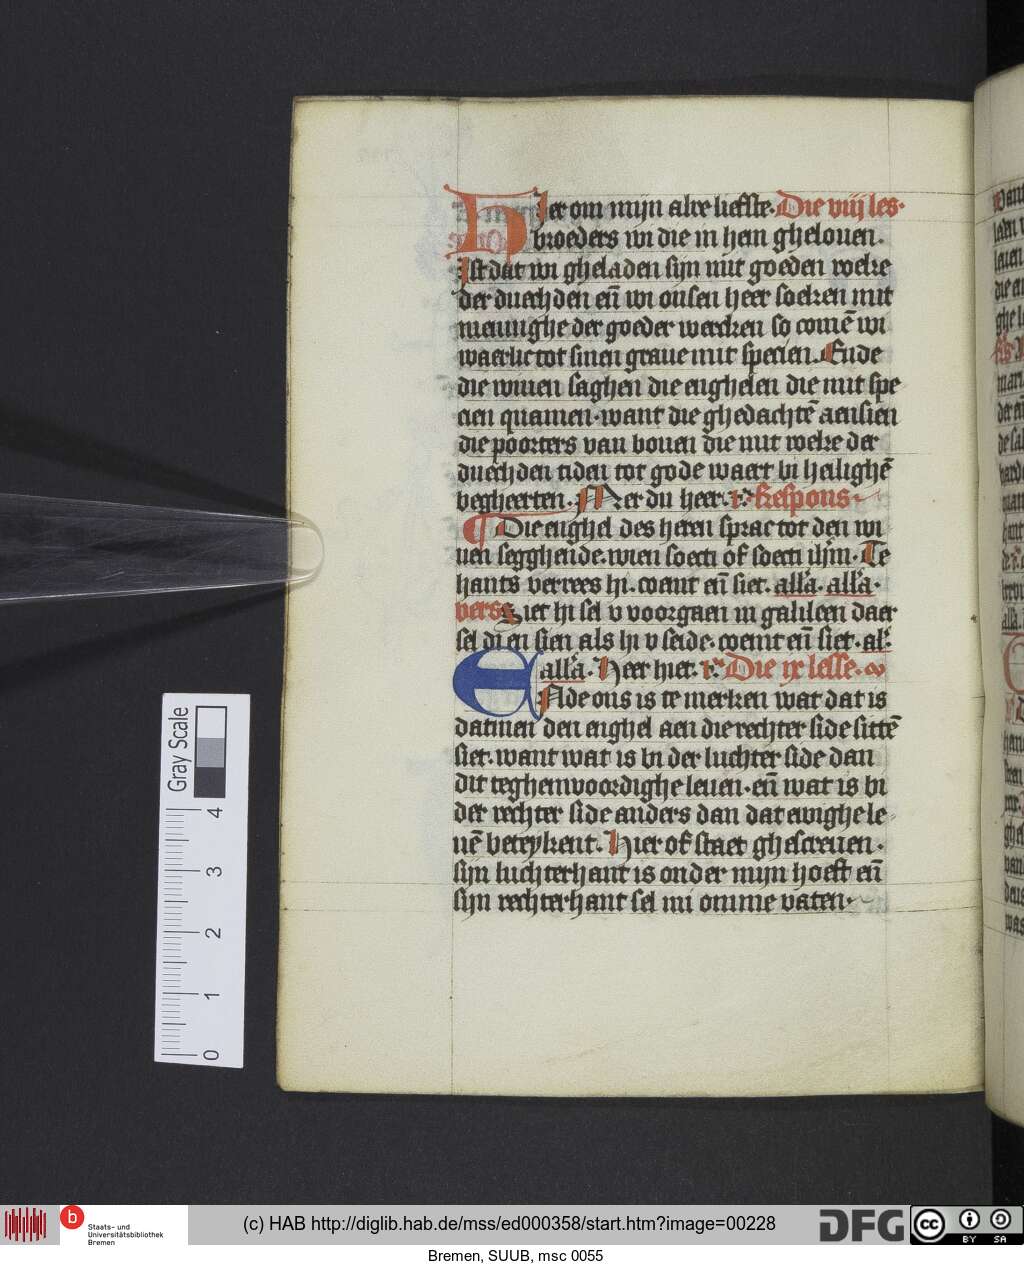 Hier om mijn alre liefste. Die viij les.
broeders wi die in hem ghelouen.
Ist dat wi gheladen sijn mit goeden roeke
der duechden eñ wi onsen heer soeken mit
meninghe der goeder wercken so comē wi
waerlic tot sinen graue mit specien. Ende
die wiuen saghen die enghelen die mit spe
cien quamen. want die ghedachtē aensien
die poorters van bouen die mit roeke der
duechden tiden tot gode waert bi heilighē
begheerten. Mer du heer. r. Respons.
Die enghel des heren sprac tot den wi
uen segghende. wien soecti of soecti ihm̄. Te
hants verrees hi. coemt eñ siet. all'a. all'a.
vers. Siet hi sel v voorgaen in galileen daer
sel di en sien als hi v seide. coemt eñ siet. al'.
all'a. Heer hiet. r. Die ix lesse.
ENde ons is te merken wat dat is
datmen den enghel aen die rechter side sittē
siet. want wat is bi der luchter side dan
dit teghenwoordighe leuen. eñ wat is bi
der rechter side anders dan dat ewighe le
uē beteykent. Hier of staet ghescreuen.
sijn luchterhant is onder mijn hoeft eñ
sijn rechterhant sel mi omme vaten.
Gray Scale
4
3
2
1
0
b
Staats- und
Universitätsbibliothek
Bremen
(c) HAB http://diglib.hab.de/mss/ed000358/start.htm?image=00228
DFG
cc
BY SA
Bremen, SUUB, msc 0055